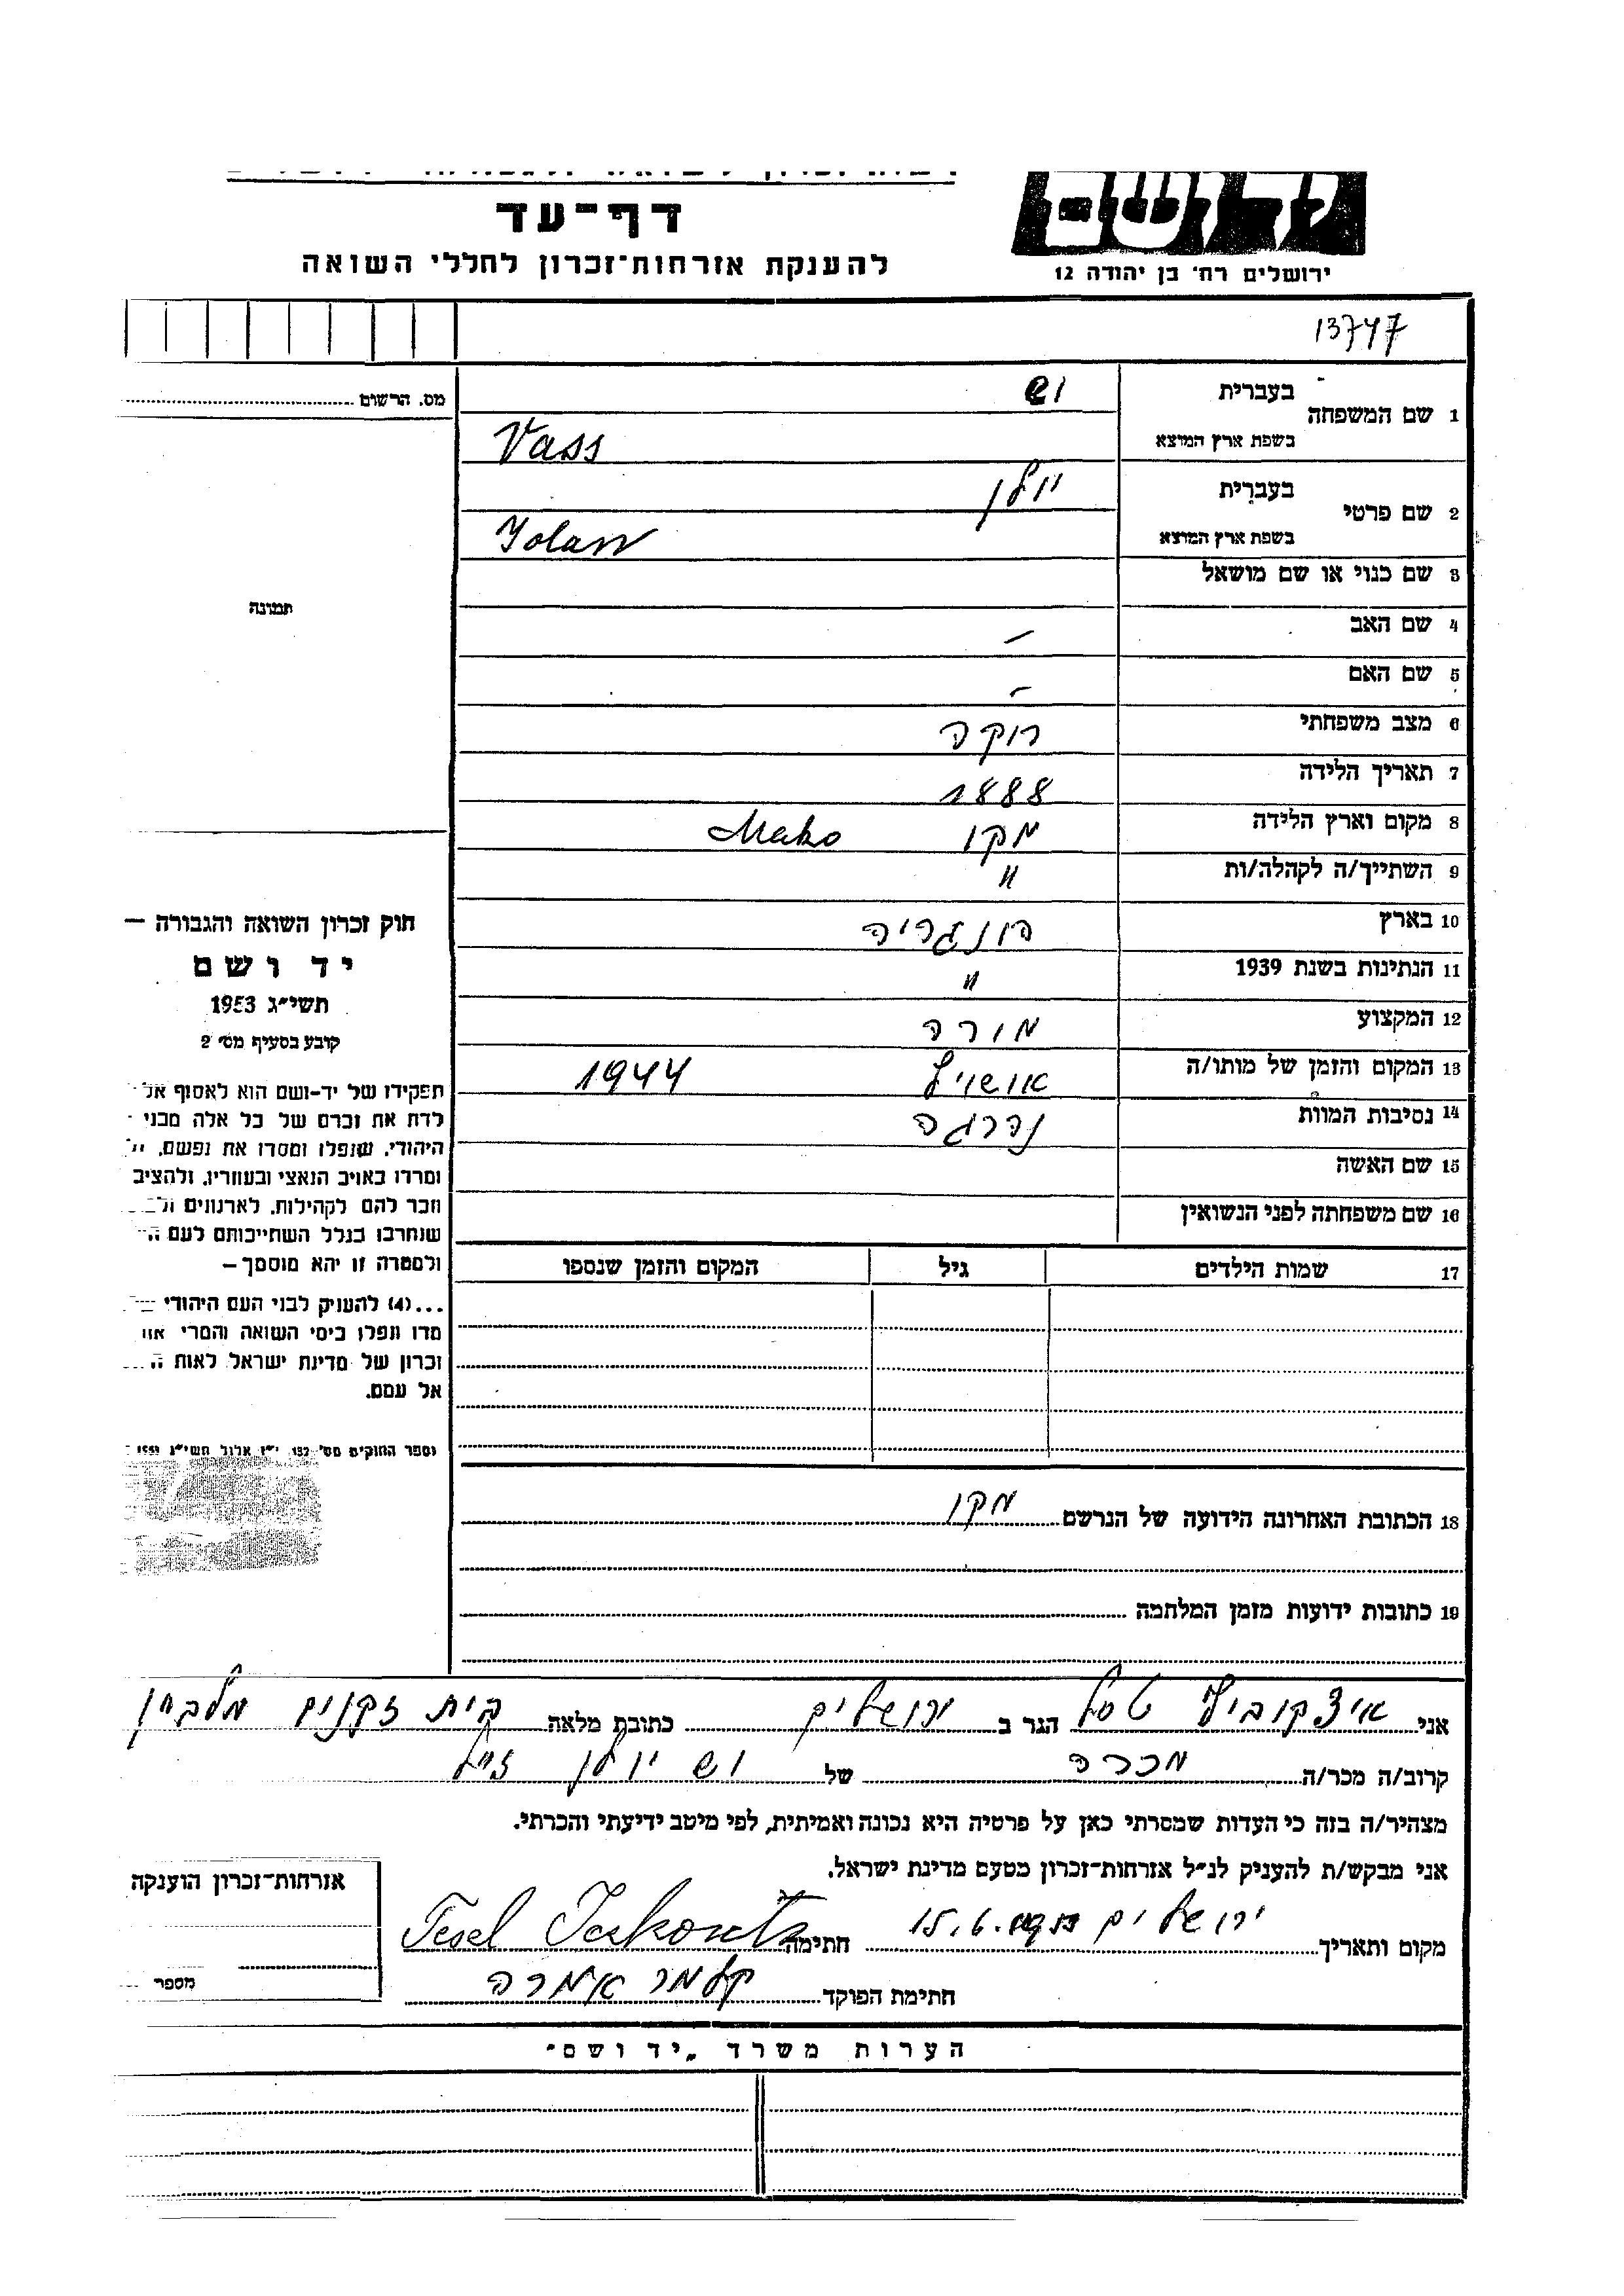 דף-עד
להענקת אזרחות-זכרון לחללי השואה
ירושלים רח׳ בן יהודה 12
13747
מס. הרשום
1 שם המשפחה בעברית וש
בשפת ארץ המוצא Vass
2 שם פרטי בעברית יולן
בשפת ארץ המוצא Yolan
תמונה
3 שם כנוי או שם מושאל
4 שם האב —
5 שם האם —
6 מצב משפחתי רוקה
7 תאריך הלידה 1888
8 מקום וארץ הלידה מקו Mako
9 השתייך/ה לקהלה/ות "
10 בארץ הונגריה
11 הנתינות בשנת 1939 "
12 המקצוע מורה
13 המקום והזמן של מותו/ה אושויץ 1944
14 נסיבות המוות נהרגה
15 שם האשה
16 שם משפחתה לפני הנשואין
17 שמות הילדים גיל המקום והזמן שנספו
חוק זכרון השואה והגבורה —
יד ושם
תשי״ג 1953
קובע בסעיף מס׳ 2
תפקידו של יד-ושם הוא לאסוף אל
לדת את זכרם של כל אלה מבני
היהודי, שנפלו ומסרו את נפשם,
ומרדו באויב הנאצי ובעוזריו, ולהציב
וזכר להם לקהילות, לארגונים
שנחרבו בגלל השתייכותם לעם
ולמטרה זו יהא מוסמך —
...(4) להעניק לבני העם היהודי
מדו ונפלו בימי השואה והמרי
זכרון של מדינת ישראל לאות
אל עמם.
18 הכתובת האחרונה הידועה של הנרשם מקו
19 כתובות ידועות מזמן המלחמה
אני איצקוביץ טסל הגר ב ירושלים כתובת מלאה בית זקנים מלבין
קרוב/ה מכר/ה מכרה של וש יולן ז״ל
מצהיר/ה בזה כי העדות שמסרתי כאן על פרטיה היא נכונה ואמיתית, לפי מיטב ידיעתי והכרתי.
אני מבקש/ת להעניק לנ״ל אזרחות-זכרון מטעם מדינת ישראל.
מקום ותאריך ירושלים 15.6. חתימה Tesel
חתימת הפוקד
אזרחות-זכרון הוענקה
מספר
הערות משרד „יד ושם"